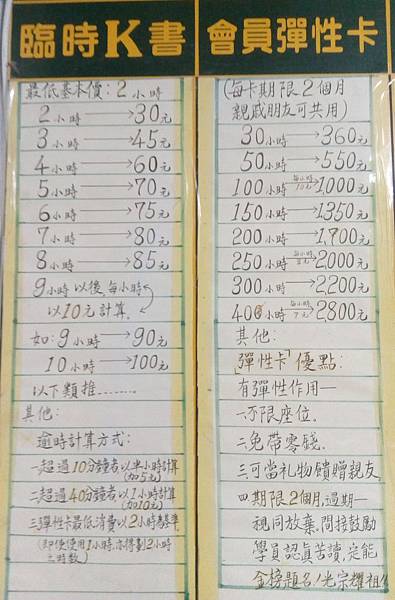 臨時K書
最低基本價：2小時
2小時→30元
3小時→45元
4小時→60元
5小時→70元
6小時→75元
7小時→80元
8小時→85元
9小時以後，每小時
以10元計算。
如：9小時→90元
10小時→100元
以下類推……
其他：
逾時計算方式：
一超過10分鐘者以半小時計算
(加5元)
二超過40分鐘者以1小時計算
(加10元)
三彈性卡最低消費以2小時基準
(即便使用1小時，亦得劃2小時
之時數)
會員彈性卡
(每卡期限2個月
親戚朋友可共用)
30小時→360元
50小時→550元
100小時每小時10元→1000元
150小時→1350元
200小時→1,700元
250小時每小時8元→2,000元
300小時→2200元
400小時每小時7元→2800元
其他：
「彈性卡」優點：
有彈性作用—
一不限座位。
二免帶零錢。
三可當礼物餽贈親友。
四期限2個月，過期—
視同放棄，間接鼓勵
學員認真苦讀，定能
金榜題名！光宗耀祖！！